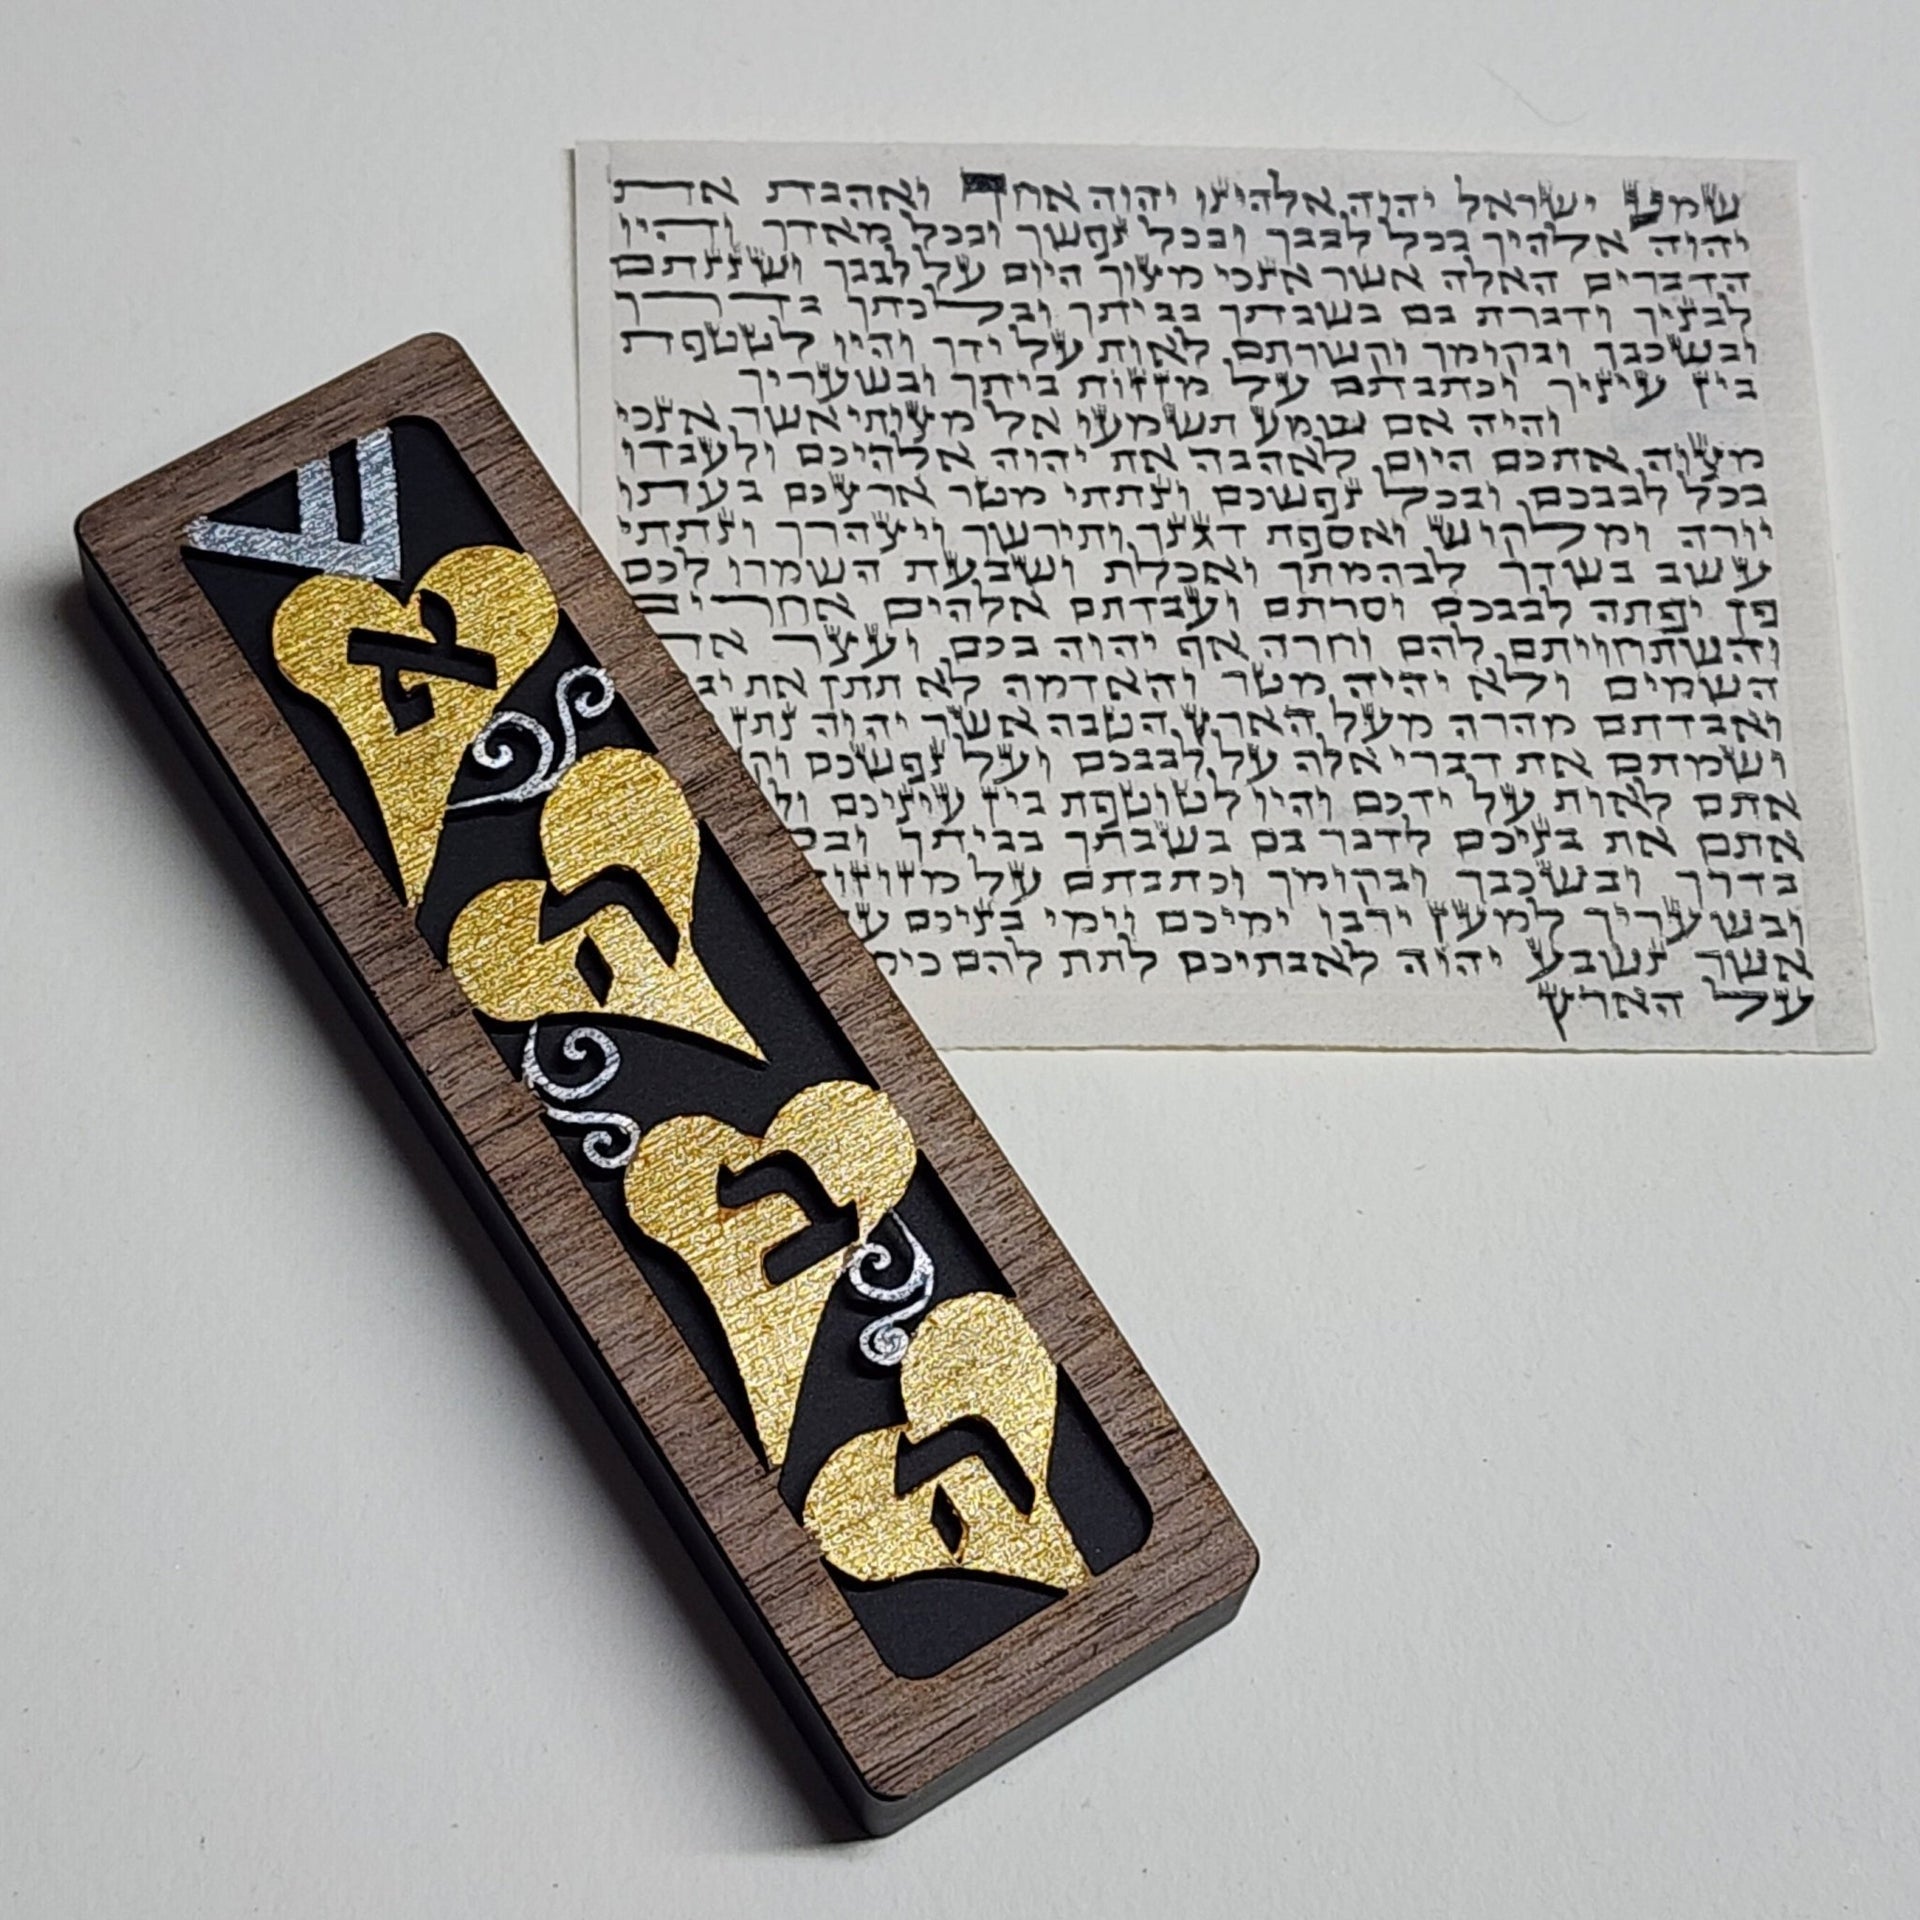 שמע ישראל יהוה אלהינו יהוה אחד ואהבת את
יהוה אלהיך בכל לבבך ובכל נפשך ובכל מאדך והיו
הדברים האלה אשר אנכי מצוך היום על לבבך ושננתם
לבניך ודברת בם בשבתך בביתך ובלכתך בדרך
ובשכבך ובקומך וקשרתם לאות על ידך והיו לטטפת
בין עיניך וכתבתם על מזזות ביתך ובשעריך
והיה אם שמע תשמעו אל מצותי אשר אנכי
מצוה אתכם היום לאהבה את יהוה אלהיכם ולעבדו
בכל לבבכם ובכל נפשכם ונתתי מטר ארצכם בעתו
יורה ומלקוש ואספת דגנך ותירשך ויצהרך ונתתי
עשב בשדך לבהמתך ואכלת ושבעת השמרו לכם
פן יפתה לבבכם וסרתם ועבדתם אלהים אחרים
והשתחויתם להם וחרה אף יהוה בכם ועצר את
השמים ולא יהיה מטר והאדמה לא תתן את
ואבדתם מהרה מעל הארץ הטבה אשר יהוה נתן
ושמתם את דברי אלה על לבבכם ועל נפשכם
אתם לאות על ידכם והיו לטוטפת בין עיניכם
אתם את בניכם לדבר בם בשבתך בביתך
בדרך ובשכבך ובקומך וכתבתם על מזוזות
ובשעריך למען ירבו ימיכם וימי בניכם
אשר נשבע יהוה לאבתיכם לתת להם
על הארץ
ש
א
ה
ב
ה